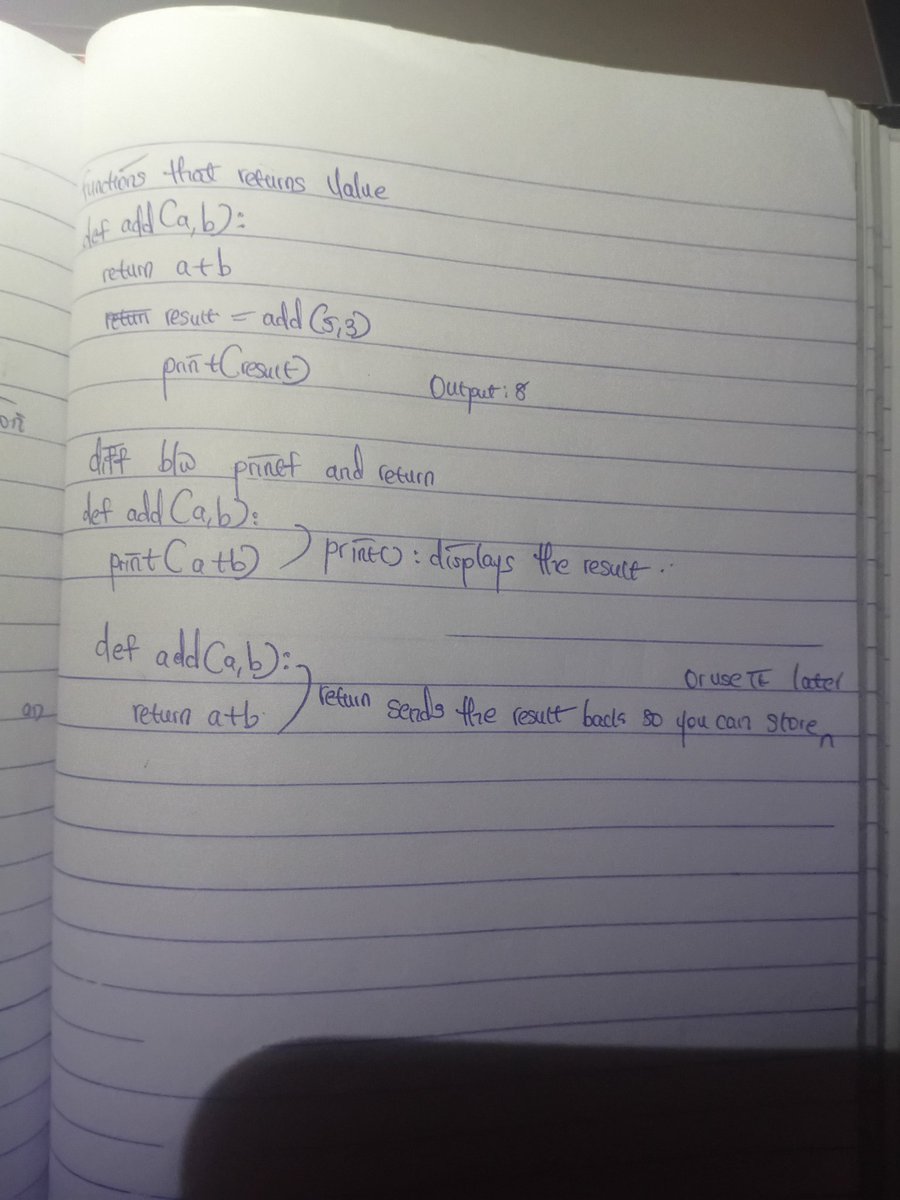 functions that returns value
def add(a,b):
return a+b
result = add(5,3)
print(result)
Output: 8
diff b/w prinef and return
def add(a,b):
print(a+b)
print(): displays the result..
def add(a,b):
return a+b
return sends the result back so you can store
or use it later
on
an